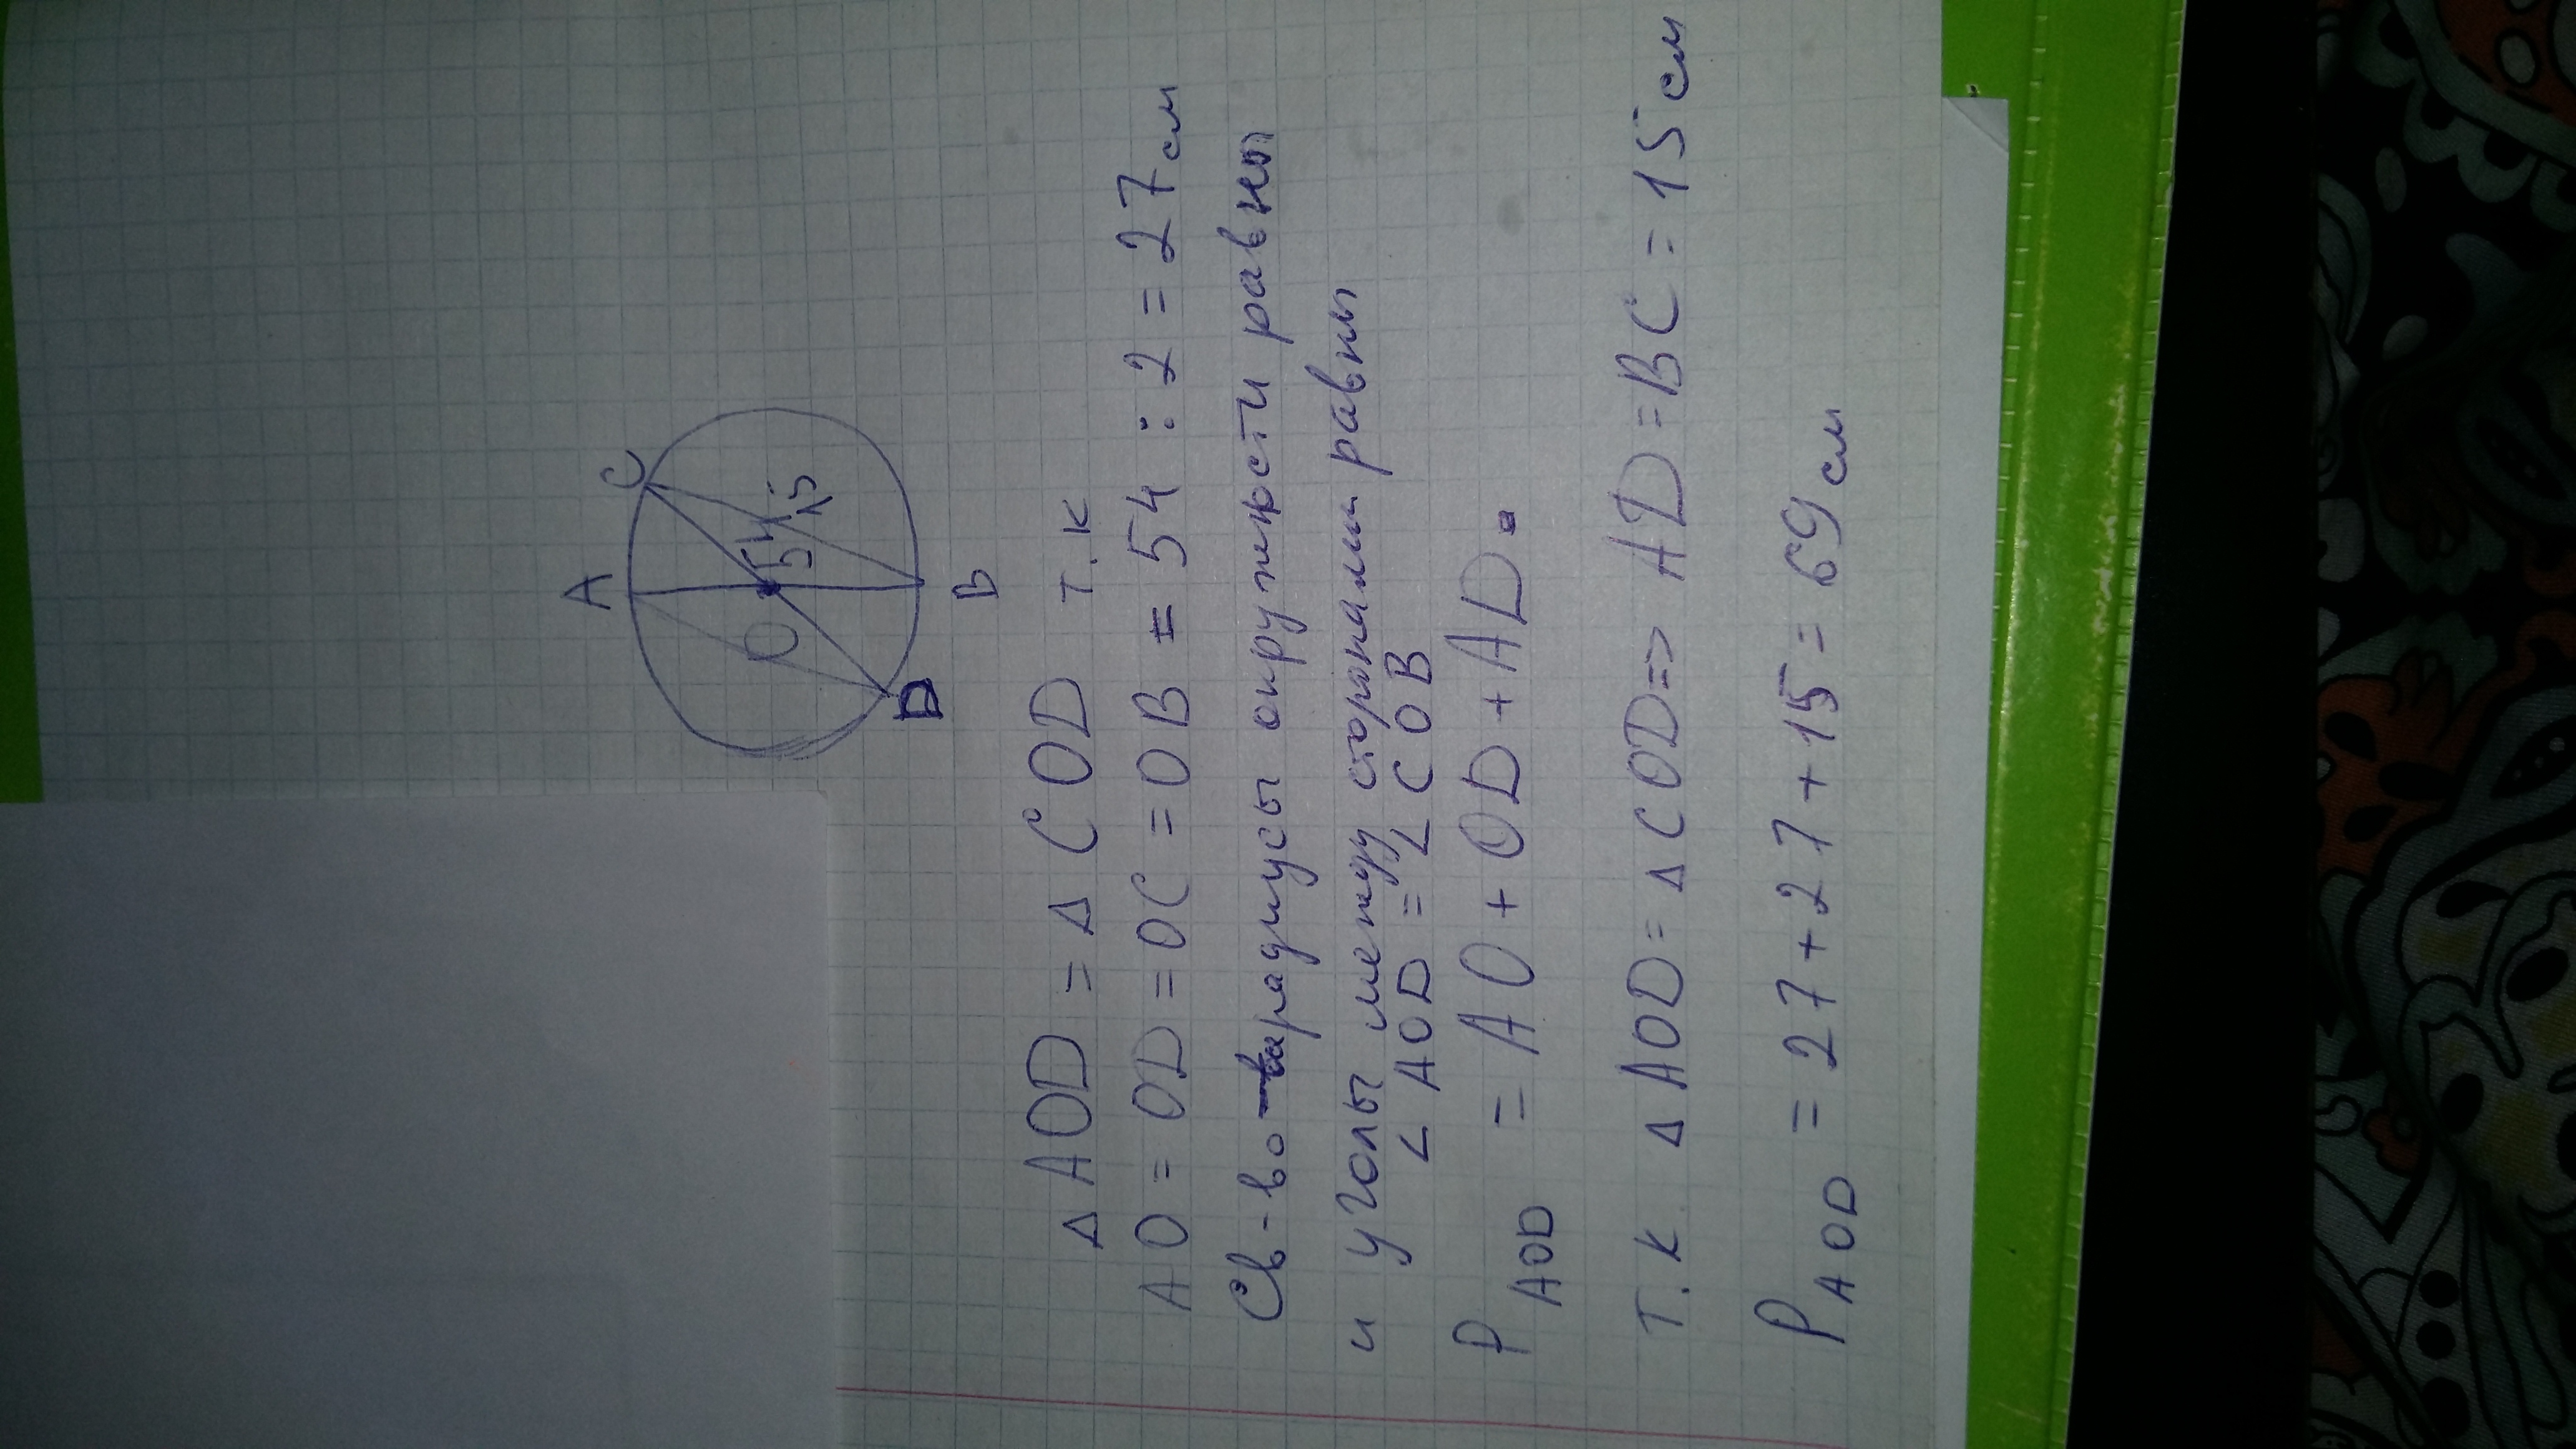 A
C
O
54
15
D
B
Δ AOD = Δ COD т.к
AO = OD = OC = OB = 54 : 2 = 27 см
Св-во радиусы окружности равны
и углы между сторонами равны
∠ AOD = ∠ COB
P AOD = AO + OD + AD.
т.к Δ AOD = Δ COD => AD = BC = 15 см
P AOD = 27 + 27 + 15 = 69 см